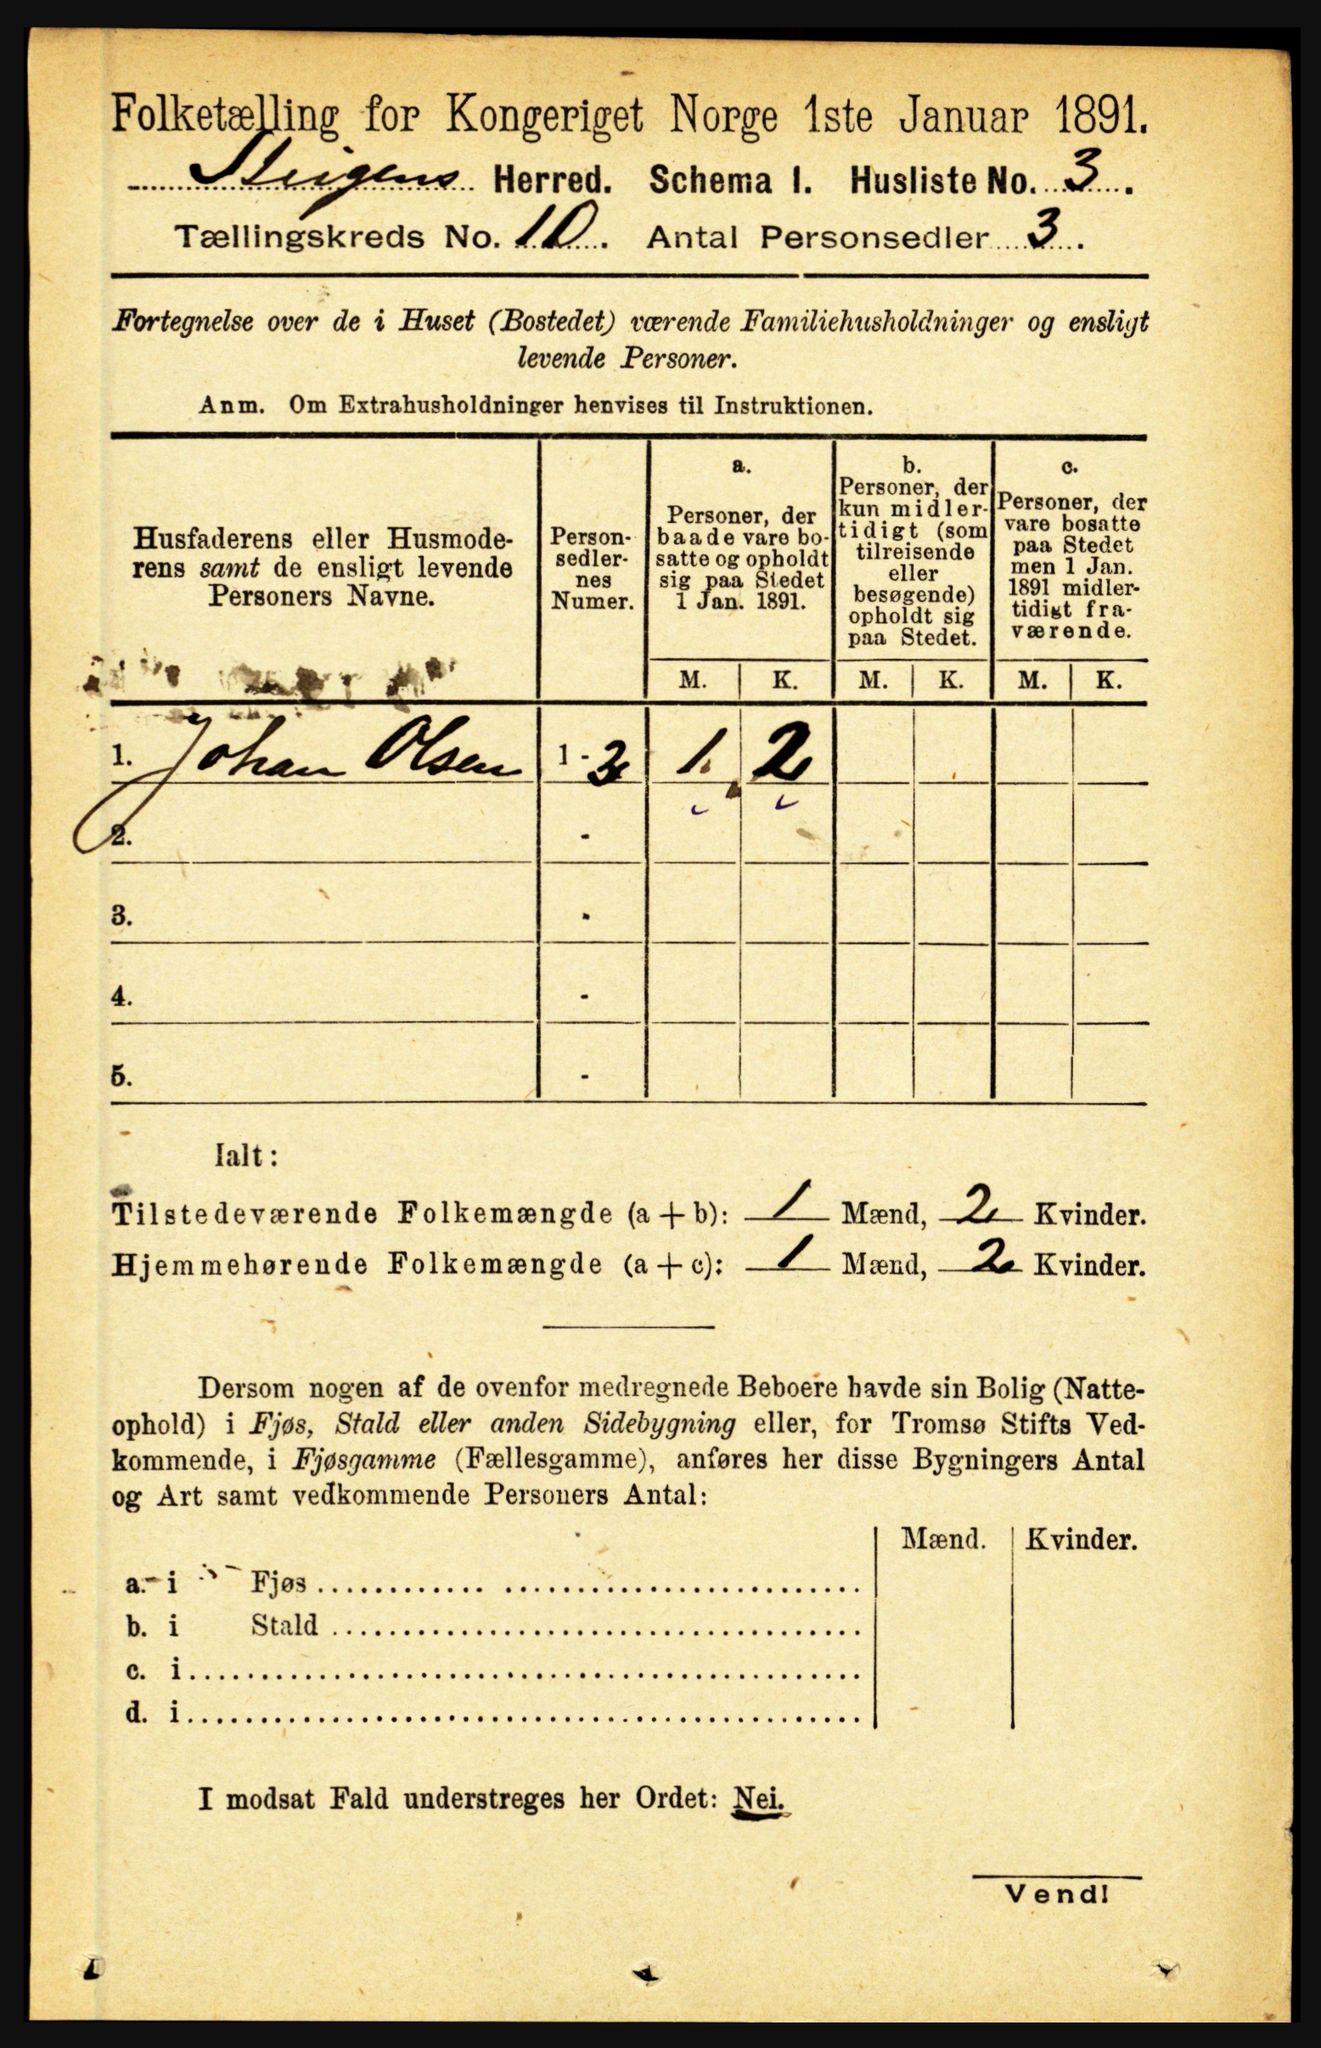 Folketælling for Kongeriget Norge 1ste Januar 1891.
Steigens Herred. Schema I. Husliste No. 3.
Tællingskreds No. 10. Antal Personsedler 3.
Fortegnelse over de i Huset (Bostedet) værende Familiehusholdninger og ensligt
levende Personer.
Anm. Om Extrahusholdninger henvises til Instruktionen.
Husfaderens eller Husmode-
rens samt de ensligt levende
Personers Navne.
Person-
sedler-
nes
Numer.
a.
Personer, der
baade vare bo-
satte og opholdt
sig paa Stedet
1 Jan. 1891.
b.
Personer, der
kun midler-
tidigt (som
tilreisende
eller
besøgende)
opholdt sig
paa Stedet.
c.
Personer, der
vare bosatte
paa Stedet
men 1 Jan.
1891 midler-
tidigt fra-
værende.
M. K. M. K. M. K.
1. Johan Olsen 1 - 3 1. 2
2. -
3. -
4. -
5. -
Ialt:
Tilstedeværende Folkemængde (a + b): 1 Mænd, 2 Kvinder.
Hjemmehørende Folkemængde (a + c): 1 Mænd, 2 Kvinder.
Dersom nogen af de ovenfor medregnede Beboere havde sin Bolig (Natte-
ophold) i Fjøs, Stald eller anden Sidebygning eller, for Tromsø Stifts Ved-
kommende, i Fjøsgamme (Fællesgamme), anføres her disse Bygningers Antal
og Art samt vedkommende Personers Antal:
Mænd. Kvinder.
a. i Fjøs
b. i Stald
c. i
d. i
I modsat Fald understreges her Ordet: Nei.
Vend!